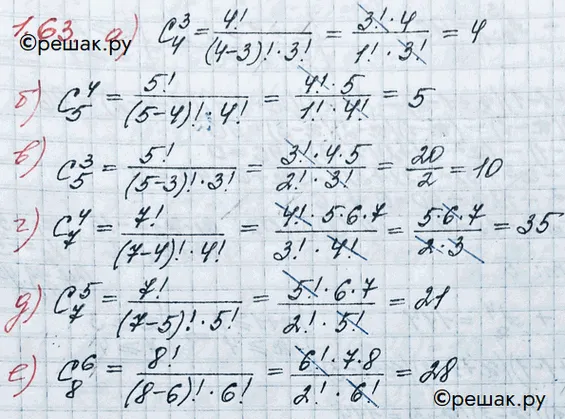 1.63 а) C₄³ = 4! / (4-3)! · 3! = 3! · 4 / 1! · 3! = 4
©решак.ру
б) C₅⁴ = 5! / (5-4)! · 4! = 4! · 5 / 1! · 4! = 5
в) C₅³ = 5! / (5-3)! · 3! = 3! · 4 · 5 / 2! · 3! = 20 / 2 = 10
г) C₇⁴ = 7! / (7-4)! · 4! = 4! · 5 · 6 · 7 / 3! · 4! = 5 · 6 · 7 / 2 · 3 = 35
д) C₇⁵ = 7! / (7-5)! · 5! = 5! · 6 · 7 / 2! · 5! = 21
е) C₈⁶ = 8! / (8-6)! · 6! = 6! · 7 · 8 / 2! · 6! = 28
©решак.ру